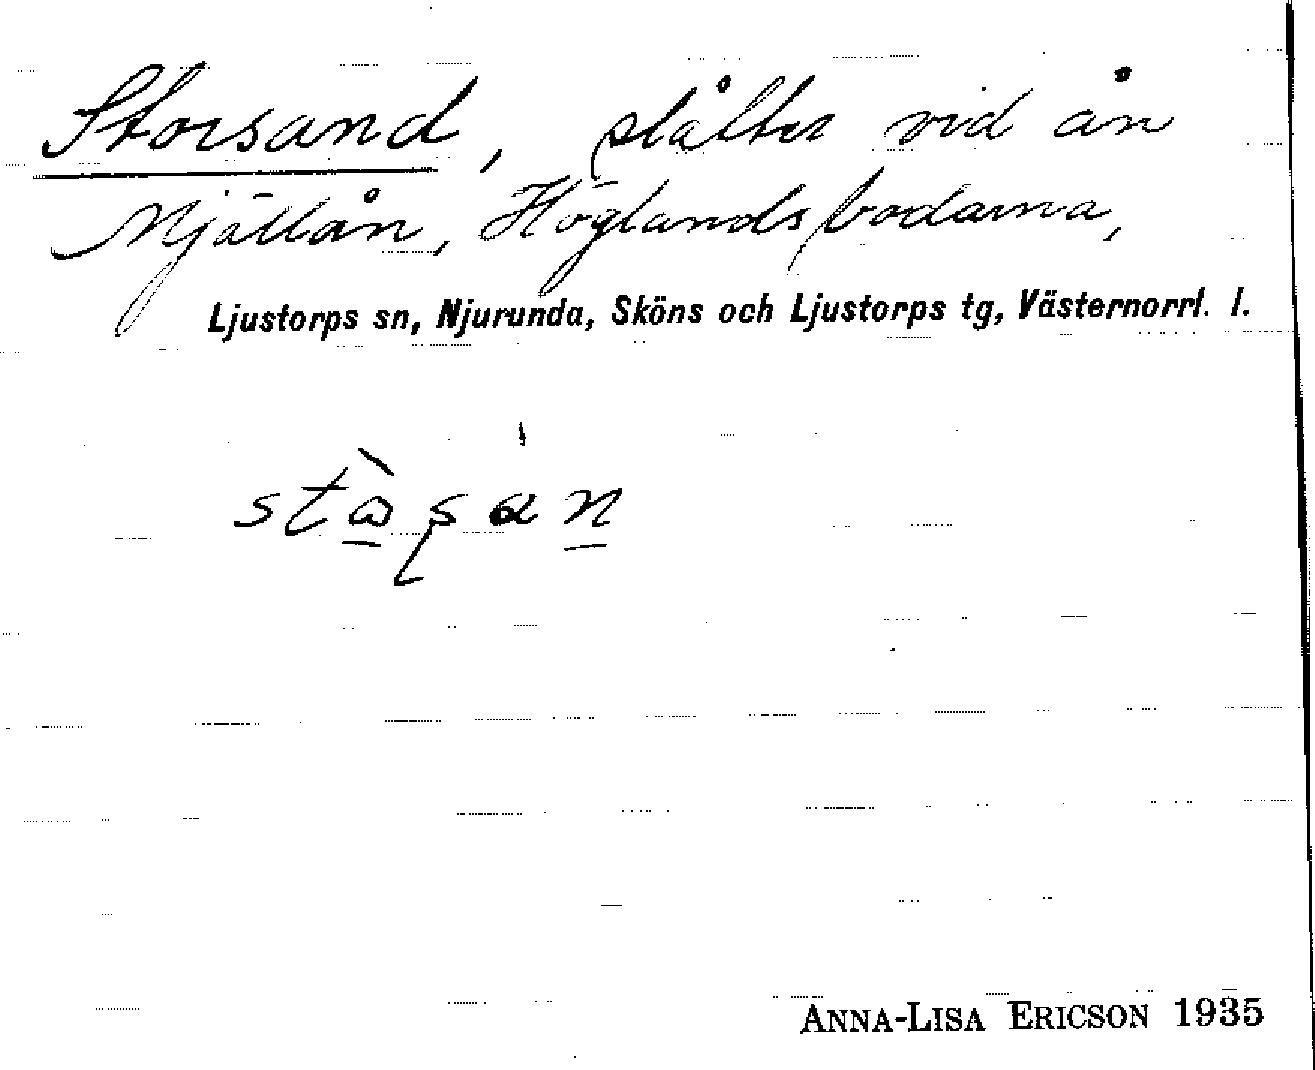 Storsand, slåtter vid ån
Njällån, Höglandsbodarna,
Ljustorps sn, Njurunda, Sköns och Ljustorps tg, Västernorrl. l.
ANNA-LISA ERICSON 1935